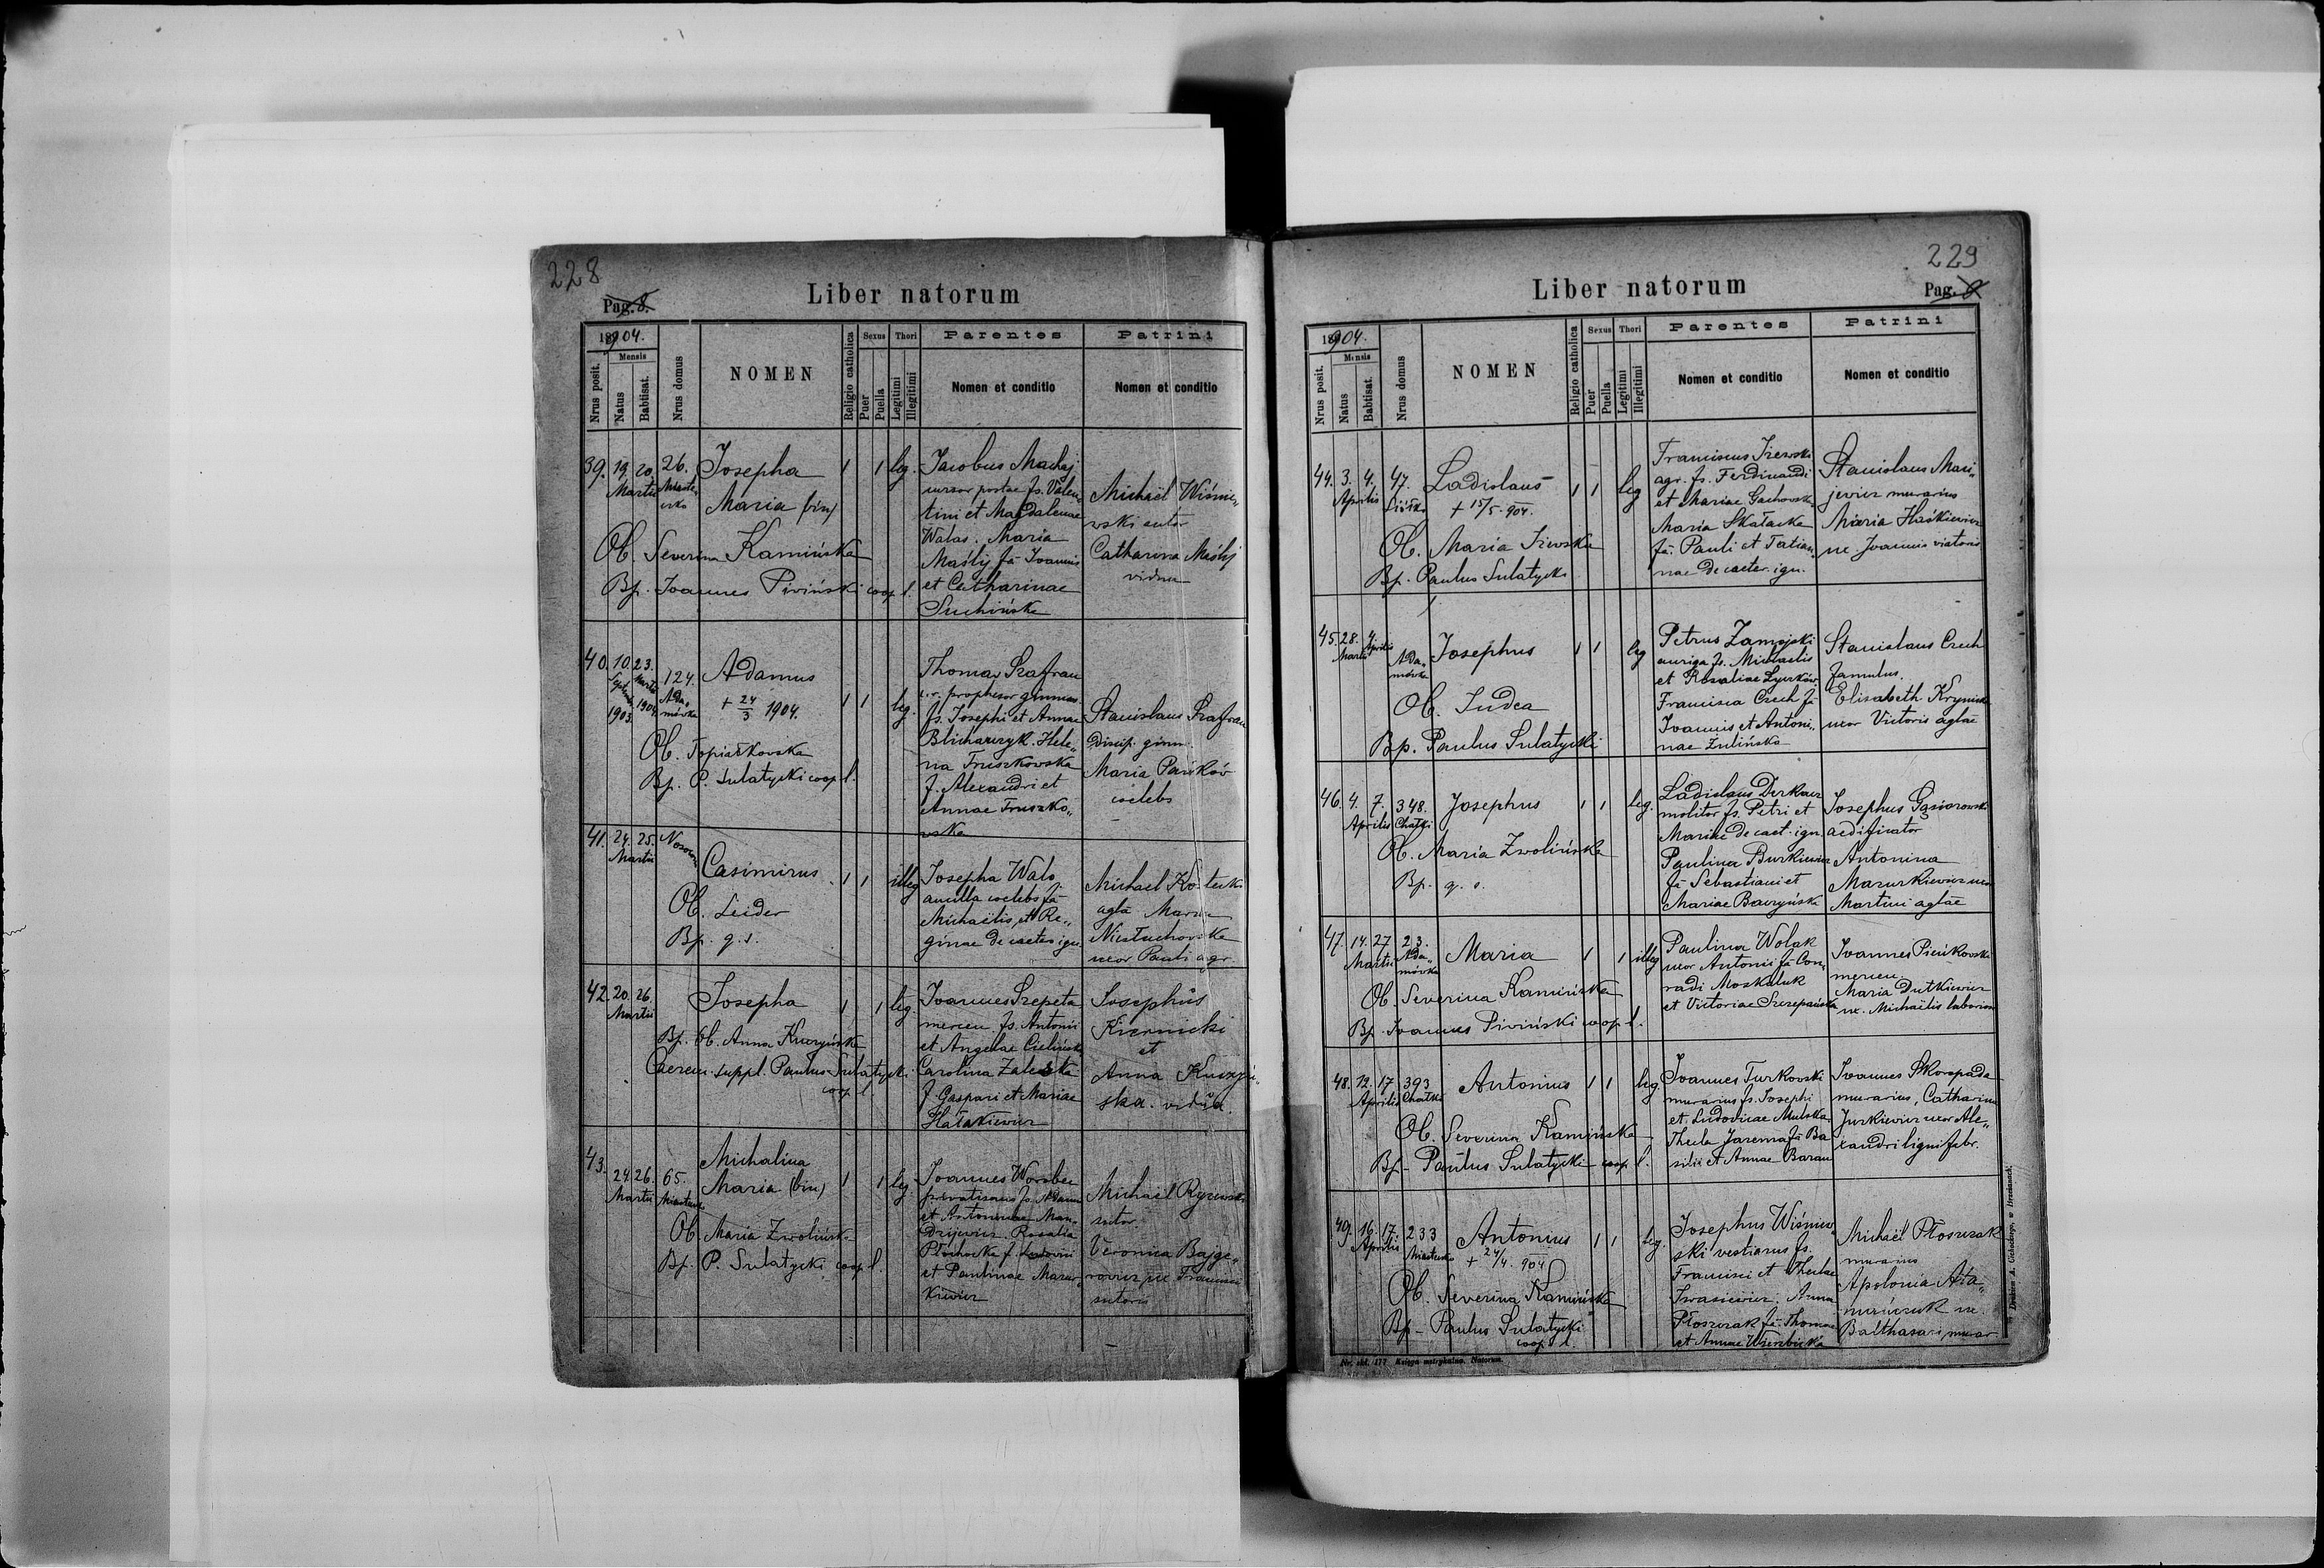 228
Pag. 8.
Liber natorum
1904.
Mensis
Nrus posit.
Natus
Babtisat.
Nrus domus
NOMEN
Religio catholica
Sexus
Puer
Puella
Thori
Legitimi
Illegitimi
Parentes
Nomen et conditio
Patrini
Nomen et conditio
39. 19. 20. 26. Josepha 1 1 leg. Jacobus Machaj
Martii Maria (bin) cursor postae fs. Valen„
tini et Magdalenae
Walas. Maria
Maślij fa Joannis
et Catharinae
Suchińska
Michaël Wiśnie„
wski sutor
Catharina Maślij
vidua
Ob. Severina Kamińska
Bp. Joannes Piviński coop. l.
40. 10. 23. 124. Adamus 1 1 leg.
Septemb. 1903. Martii 1904. Ada„
mówka
+ 24/3 1904.
Thomas Szafran
c. r. prophesor gimnas.
fs. Josephi et Annae
Blicharczyk. Hele„
na Truszkowska
f. Alexandri et
Annae Truszko„
wska
Stanislaus Szafran
discip. gimn.
Maria Pańków
coelebs
Ob. Topiatkowska
Bp. P. Sulatycki coop. l.
41. 24. 25. Martii Casimirus 1 1 illeg.
Josepha Walo
ancilla coelebs fa
Michaëlis et Re„
ginae de caeter. ign.
Michael
agla Maria
Niestuchowska
uxor Pauli agr.
Ob. Leider
Bp. q. s.
42. 20. 26. Martii Josepha 1 1 leg.
Joannes Szepeta
mercen. fs. Antonii
et Angelae Cielińska
Carolina Zaleska
f. Gaspari et Mariae
Hałakiewicz
Josephus
Kiernicki
et
Anna Kuczyń„
ska vidua.
Bp. Ob. Anna Kuczyńska
Caerem. suppl. Paulus Sulatycki
coop. l.
43. 24. 26. 65. Michalina
Martii Maria (bin) 1 1 leg.
Joannes Worobec
privatisans fs. Adami
et Antoninae Man„
drijewicz. Rosalia
Płochocka f. Ludovici
et Paulinae Mazur„
kiewicz
Michaël Ryzewski
sutor.
Veronica Bajge„
rowicz ux Francisci
sutoris
Ob. Maria Zwolińska
Bp. P. Sulatycki coop. l.
229
Pag. 9
Liber natorum
1904.
Mensis
Nrus posit.
Natus
Babtisat.
Nrus domus
NOMEN
Religio catholica
Sexus
Puer
Puella
Thori
Legitimi
Illegitimi
Parentes
Nomen et conditio
Patrini
Nomen et conditio
44. 3. 4. 47. Ladislaus 1 1 leg
Aprilis + 15/5. 904.
Franciscus Iżewski
agr. fs. Ferdinandi
et Mariae Gachowska
Maria Skałacka
fa. Pauli et Tatian„
nae de caeter. ign.
Stanislaus Maci„
jewicz murarius
Maria Haśkiewicz
ux Joannis viatoris
Ob. Maria Iżewska
Bp. Paulus Sulatycki
45. 28. Martii 4. Aprilis Ada„
mówka Josephus 1 1 leg
Petrus Zamojski
auriga fs. Michaelis
et Rosaliae Łyczków
Francisca Czech fa
Joannis et Antoni„
nae Zulińska
Stanislaus Czech
famulus.
Elisabeth Krynicka
uxor Victoris aglae
Ob. Judea
Bp. Paulus Sulatycki
46. 4. 7. 348. Josephus 1 1 leg.
Aprilis Chatki
Ladislaus Derkacz
molitor fs. Petri et
Mariae de caet. ign.
Paulina Burkiewicz
fa Sebastiani et
Mariae Baczyńska
Josephus Gąsiorowski
aedificator
Antonina
Mazurkiewicz uxor
Martini aglae
Ob. Maria Zwolińska
Bp. q. s.
47. 14. 27. 23. Maria 1 1 illeg
Martii Ada„
mówka
Paulina Wolak
uxor Antonii fa Con„
radi Moskaluk
et Victoriae Szczepańska
Joannes Pieńkowski
mercen.
Maria Dutkiewicz
ux. Michaëlis laborios
Ob. Severina Kamińska
Bp. Joannes Piviński coop. l.
48. 12. 17. 393 Antonius 1 1 leg
Aprilis Chatki
Joannes Turkowski
murarius fs. Josephi
et Ludovicae Mulska
Thecla Jarema fa Ba
silii et Annae Baran
Joannes Skoropada
murarius, Catharina
Jurkiewicz uxor Ale„
xandri lignifabr.
Ob. Severina Kamińska
Bp- Paulus Sulatycki coop. l.
49. 16. 17. 233 Antonius 1 1 leg.
Aprilis Miasteczko + 24/4. 904
Josephus Wiśniew„
ski vestiarius fs.
Francisci et Theclae
Iwasiewicz. Anna
Płoszczak fa. Thomae
et Annae Wierzbicka
Michaël Płoszczak
murarius
Apolonia Ata„
mańczuk ux.
Balthasari murar
Ob. Severina Kamińska
Bp- Paulus Sulatycki
coop. l.
Nr. skł. 177 Księga metrykalna. Natorum.